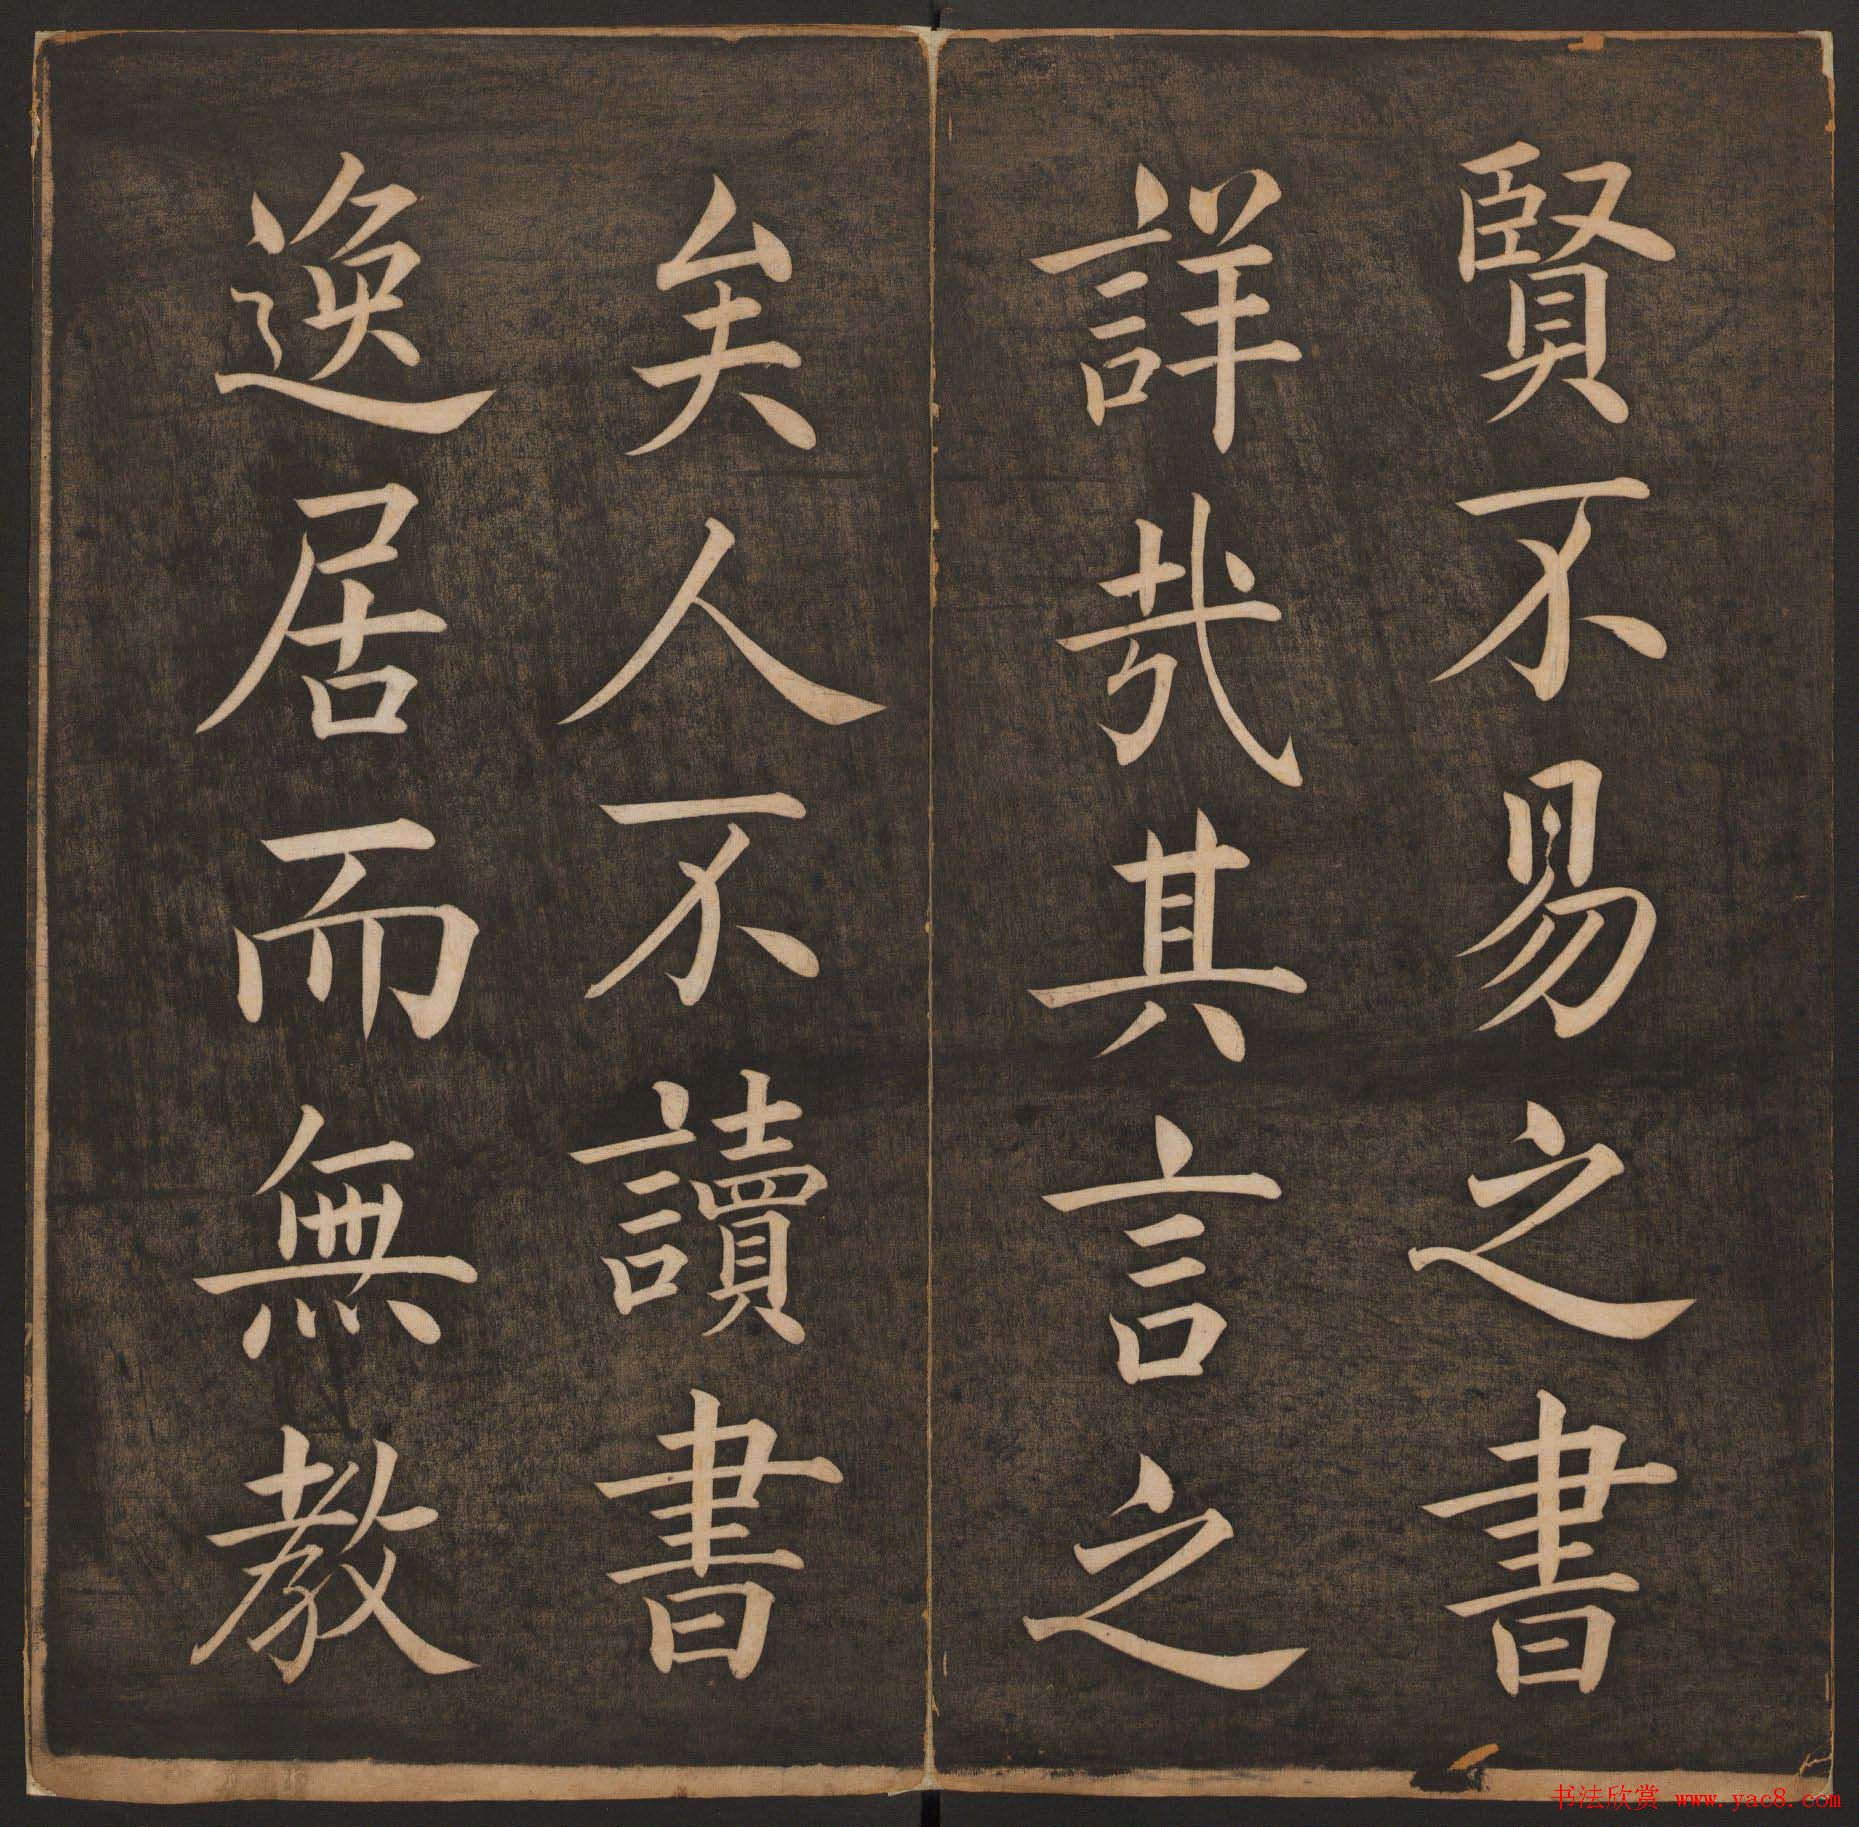 賢不易之書
詳哉其言之
矣人不讀書
逸居而無教
书法欣赏 www.yac8.com